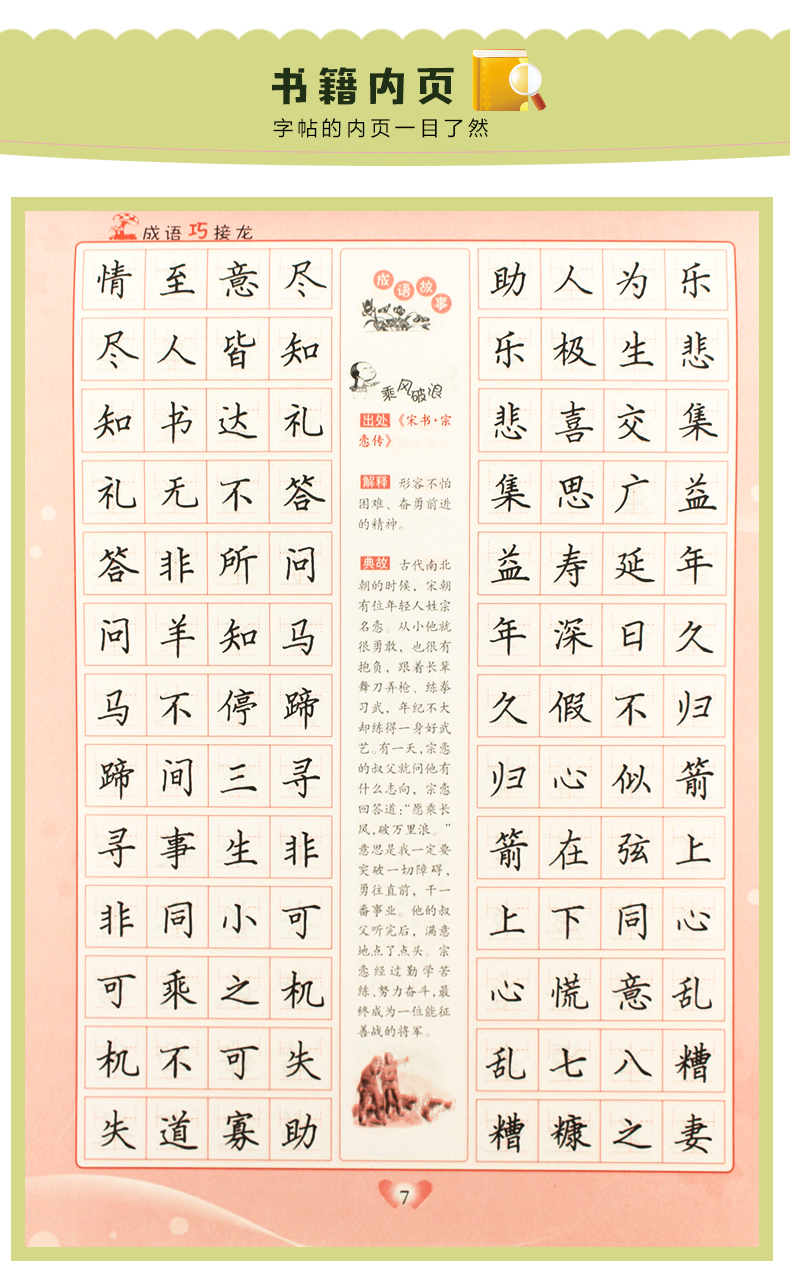 书籍内页
字帖的内页一目了然
成语巧接龙
情至意尽
尽人皆知
知书达礼
礼无不答
答非所问
问羊知马
马不停蹄
蹄间三寻
寻事生非
非同小可
可乘之机
机不可失
失道寡助
成语故事
乘风破浪
出处《宋书·宗
悫传》
解释 形容不怕
困难、奋勇前进
的精神。
典故 古代南北
朝的时候，宋朝
有位年轻人姓宗
名悫。从小他就
很勇敢，也很有
抱负，跟着长辈
舞刀弄枪、练拳
习武，年纪不大
却练得一身好武
艺。有一天，宗悫
的叔父就问他有
什么志向，宗悫
回答道：“愿乘长
风，破万里浪。”
意思是我一定要
突破一切障碍，
勇往直前，干一
番事业。他的叔
父听完后，满意
地点了点头。宗
悫经过勤学苦
练、努力奋斗，最
终成为一位能征
善战的将军。
助人为乐
乐极生悲
悲喜交集
集思广益
益寿延年
年深日久
久假不归
归心似箭
箭在弦上
上下同心
心慌意乱
乱七八糟
糟糠之妻
7